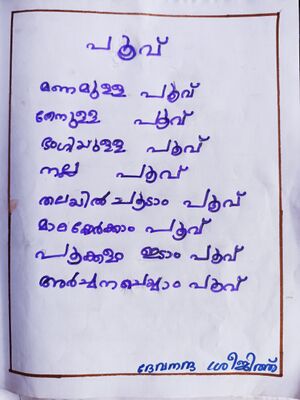 പൂവ്
മണമുള്ള പൂവ്
തേനുള്ള പൂവ്
ഭംഗിയുള്ള പൂവ്
നല്ല പൂവ്
തലയിൽ ചൂടാം പൂവ്
മാലകോർക്കാം പൂവ്
പൂക്കളം ഇടാം പൂവ്
അർച്ചനചെയ്യാം പൂവ്
ദേവനന്ദ ശ്രീജിത്ത്